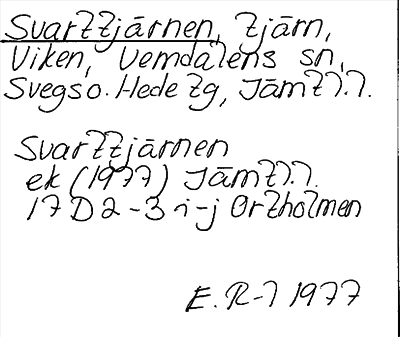 Svarttjärnen, tjärn,
Viken, Vemdalens sn,
Svegs o. Hede tg, Jämtl.
Svarttjärnen
ek (1977) Jämtl.
17 D 2-3 i-j Ortholmen
E. R-l 1977